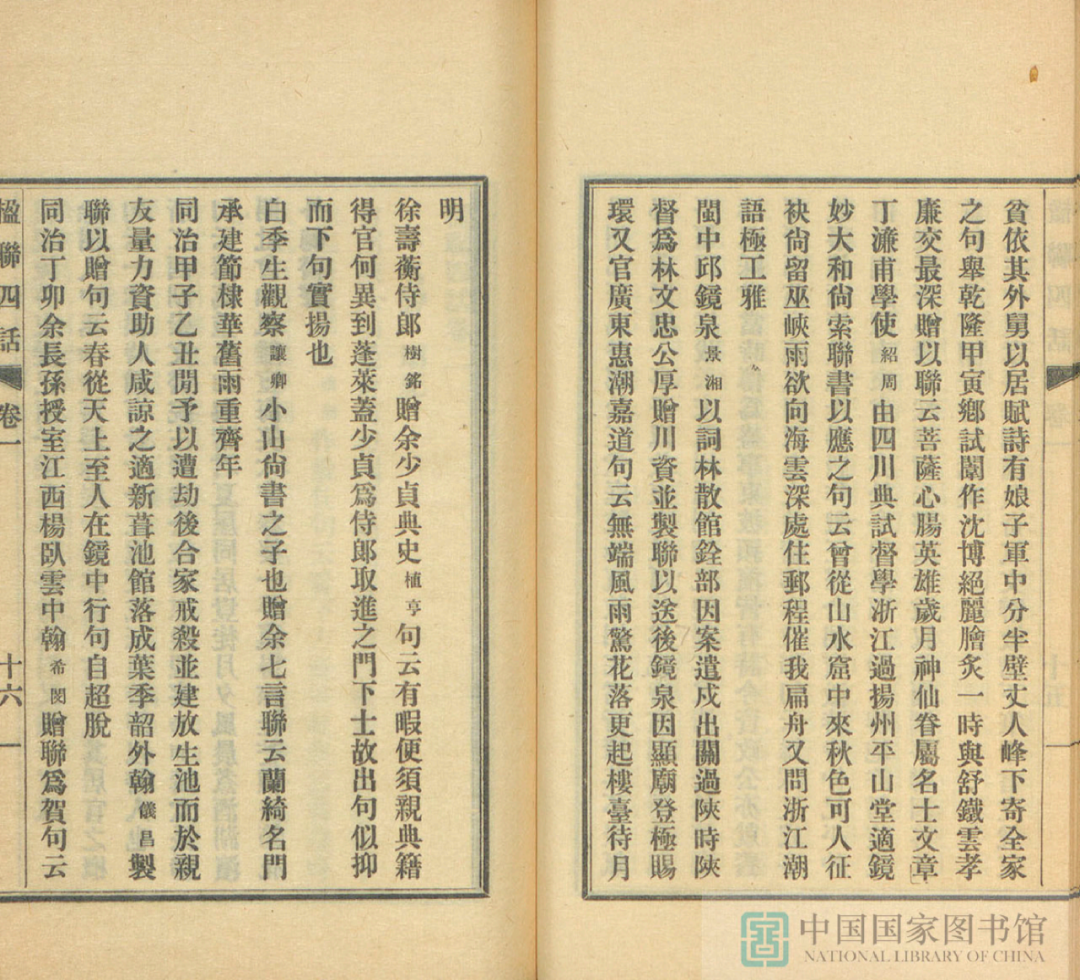 貧依其外舅以居賦詩有娘子軍中分半壁丈人峰下寄全家
之句舉乾隆甲寅鄉試闈作沈博絕麗膾炙一時與舒鐵雲孝
廉交最深贈以聯云菩薩心腸英雄歲月神仙眷屬名士文章
丁濂甫學使紹周由四川典試督學浙江過揚州平山堂適鏡
妙大和尙索聯書以應之句云曾從山水窟中來秋色可人征
袂尙留巫峽雨欲向海雲深處住郵程催我扁舟又問浙江潮
語極工雅
閩中邱鏡泉景湘以詞林散館銓部因案遣戍出關過陝時陝
督爲林文忠公厚贈川資並製聯以送後鏡泉因顯廟登極賜
環又官廣東惠潮嘉道句云無端風雨驚花落更起樓臺待月
明
徐壽蘅侍郞樹銘贈余少貞典史植亨句云有暇便須親典籍
得官何異到蓬萊蓋少貞爲侍郞取進之門下士故出句似抑
而下句實揚也
白季生觀察讓卿小山尙書之子也贈余七言聯云蘭綺名門
承建節棣華舊雨重齊年
同治甲子乙丑閒予以遭劫後合家戒殺並建放生池而於親
友量力資助人咸諒之適新葺池館落成葉季韶外翰儀昌製
聯以贈句云春從天上至人在鏡中行句自超脫
同治丁卯余長孫授室江西楊臥雲中翰希閔贈聯爲賀句云
楹聯四話
卷一
十六
中国国家图书馆
NATIONAL LIBRARY OF CHINA